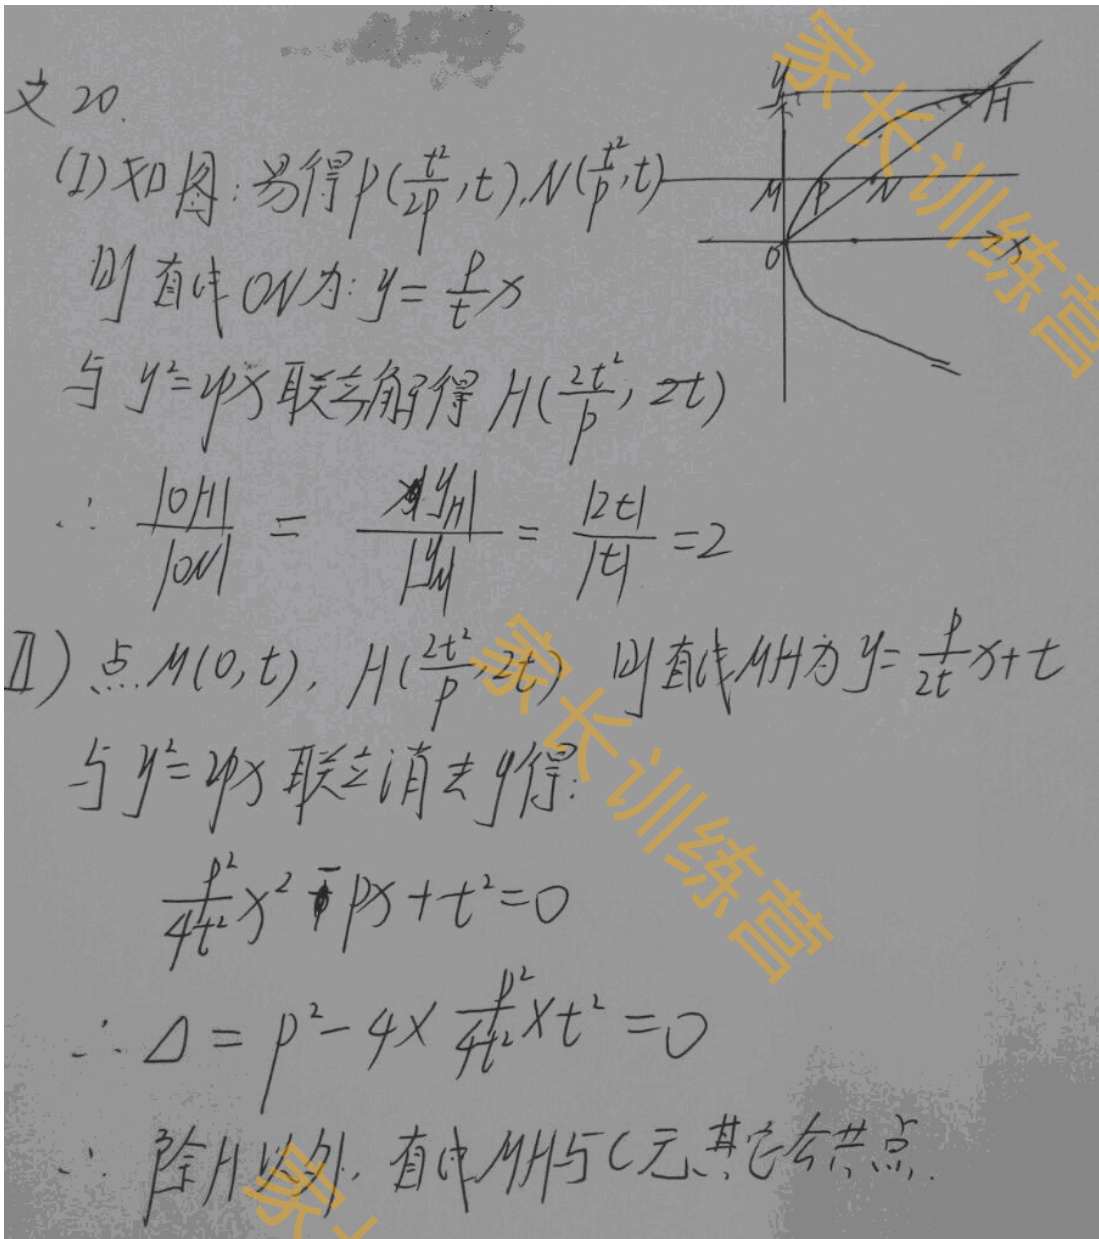 文20.
(I)如图:易得P(t²/2p,t),N(t²/p,t)
则直线ON为:y=p/t x
与y²=2px联立解得H(2t²/p,2t)
∴ |OH|/|ON| = |y_H|/|y_N| = |2t|/|t| =2
II)点M(0,t),H(2t²/p,2t) 则直线MH为y=p/2t x+t
与y²=2px联立消去y得:
p²/4t² x² - px+t²=0
∴ Δ = p²-4× p²/4t² ×t² =0
∴ 除H以外,直线MH与C无其它公共点.
y
H
M
P
N
O
x
家长训练营
家长训练营
家长